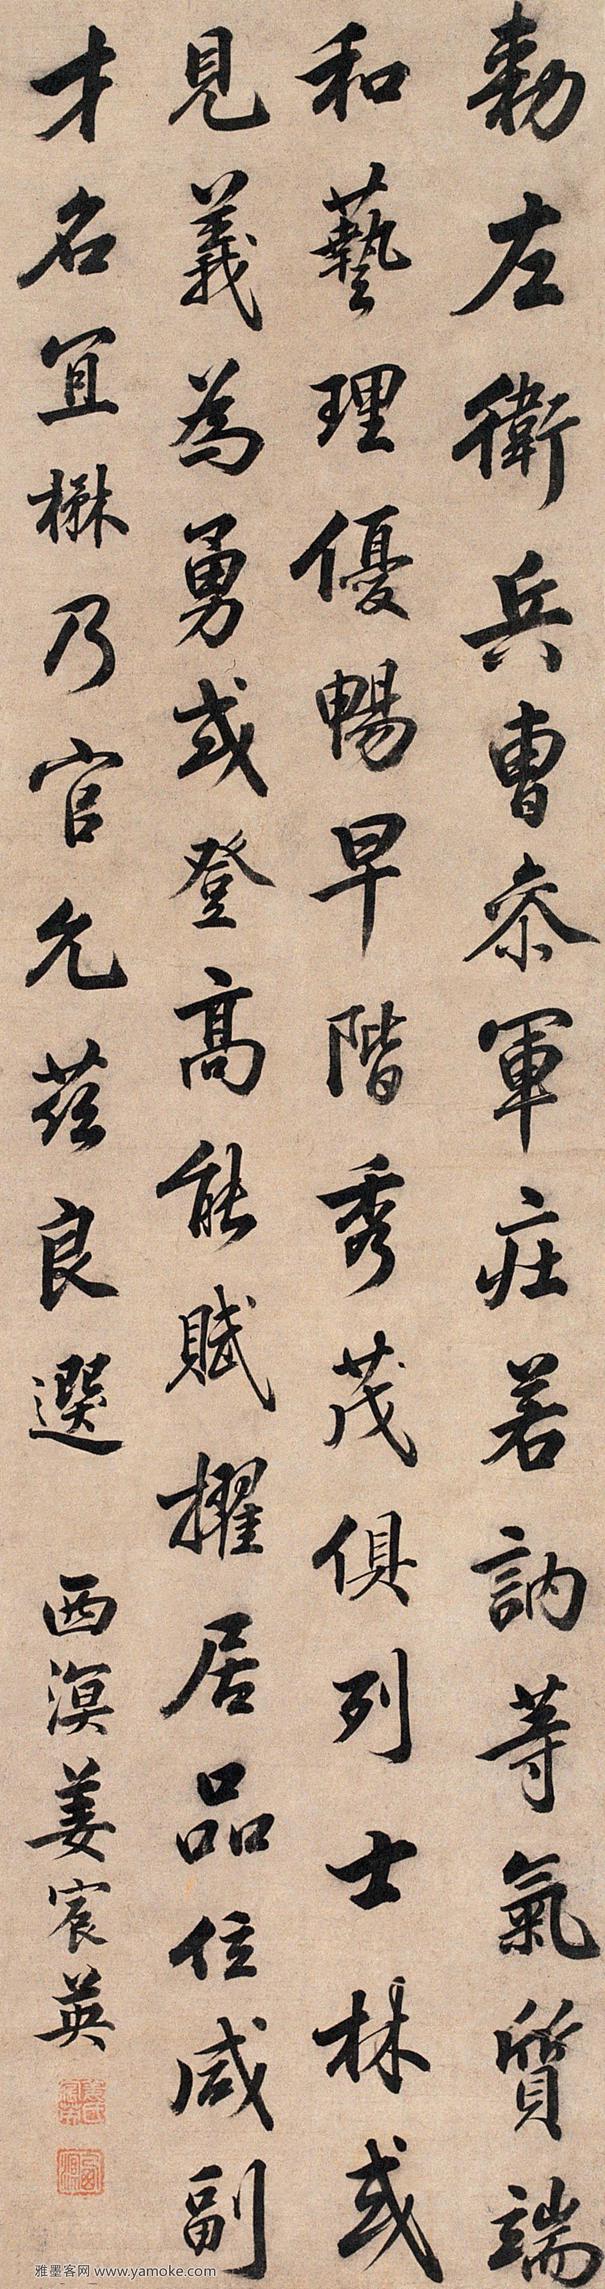 勅左衛兵曹叅軍庄若訥等氣質端
和藝理優暢早階秀茂俱列士林或
見義為勇或登高能賦擢居品位咸副
才名宜楙乃官允茲良選
西溟姜宸英
雅墨客网 www.yamoke.com